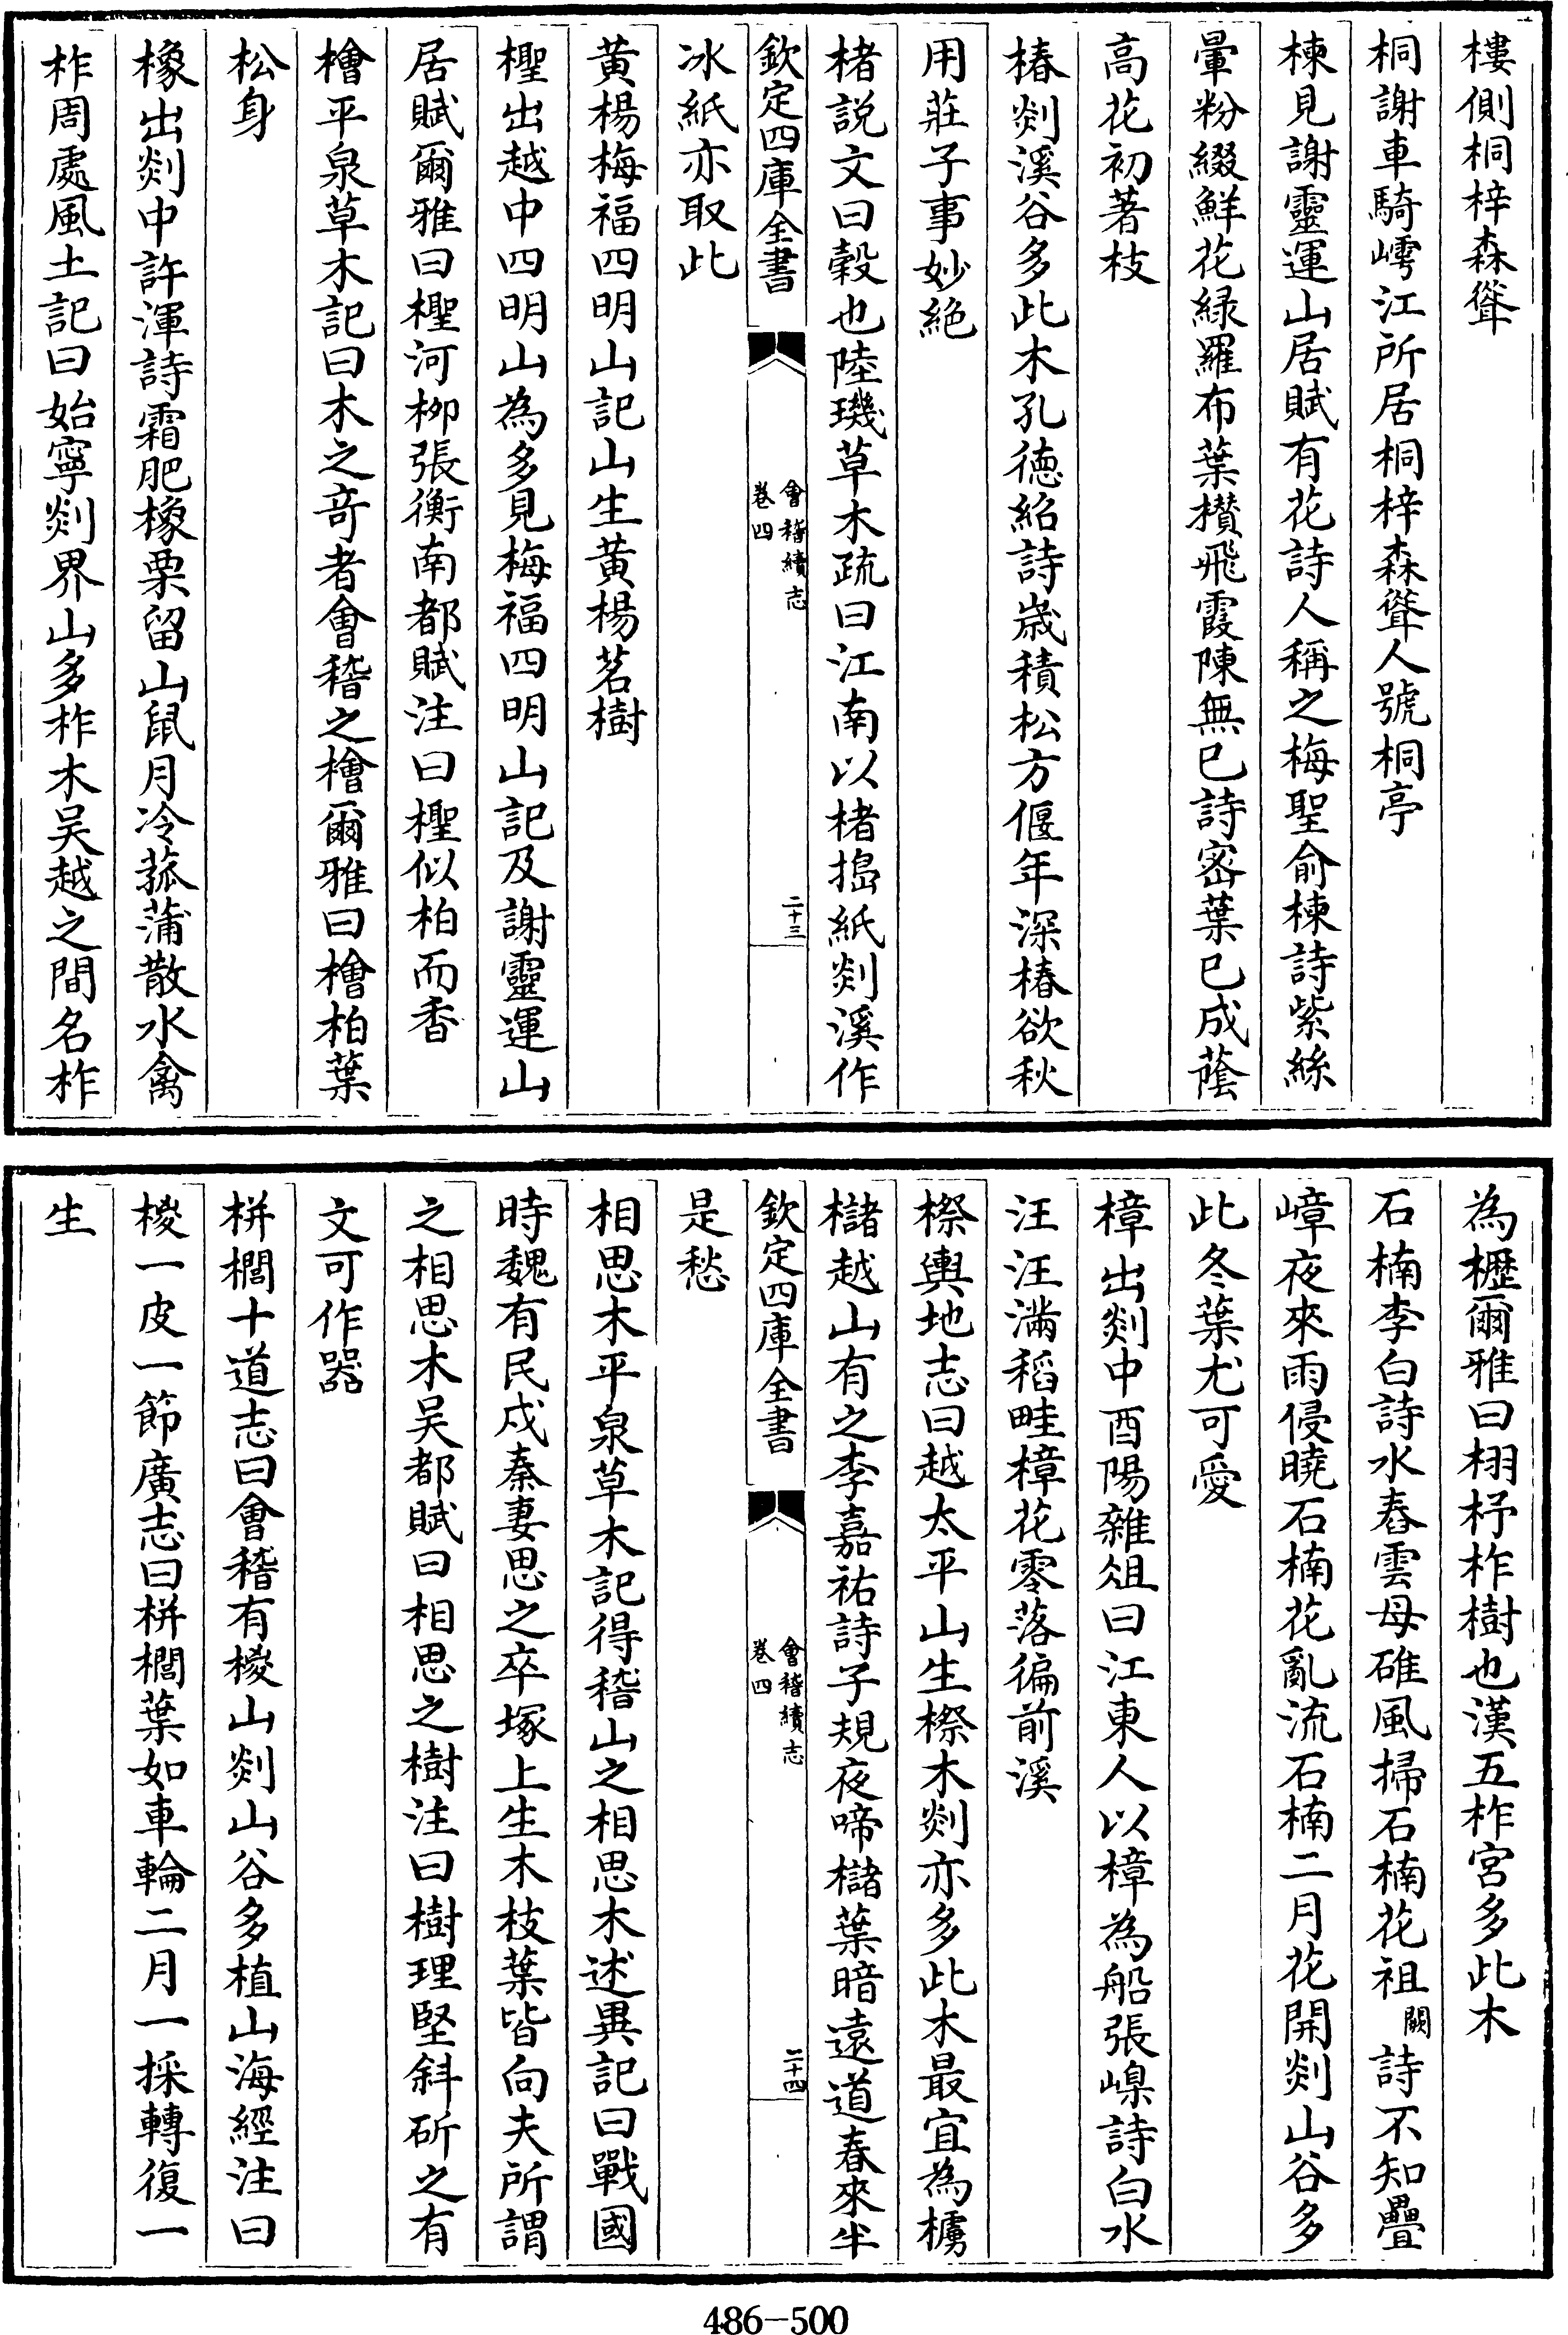 樓側桐梓森聳
桐謝車騎嶀江所居桐梓森聳人號桐亭
楝見謝靈運山居賦有花詩人稱之梅聖俞楝詩紫絲
暈粉綴鮮花緑羅布葉攅飛霞陳無已詩宻葉已成蔭
高花初著枝
椿剡溪谷多此木孔徳紹詩嵗積松方偃年深椿欲秋
用莊子事妙絶
楮説文曰榖也陸璣草木疏曰江南以楮搗紙剡溪作
欽定四庫全書
會稽續志
卷四
二十三
冰紙亦取此
黄楊梅福四明山記山生黄楊茗樹
檉出越中四明山為多見梅福四明山記及謝靈運山
居賦爾雅曰檉河柳張衡南都賦注曰檉似柏而香
檜平泉草木記曰木之竒者會稽之檜爾雅曰檜柏葉
松身
橡出剡中許渾詩霜肥橡栗留山鼠月冷菰蒲散水禽
柞周處風土記曰始寧剡界山多柞木吴越之間名柞
為櫪爾雅曰栩杼柞樹也漢五柞宮多此木
石楠李白詩水舂雲母碓風掃石楠花祖闕詩不知疊
嶂夜來雨侵曉石楠花亂流石楠二月花開剡山谷多
此冬葉尤可愛
樟出剡中酉陽雜俎曰江東人以樟為船張嵲詩白水
汪汪滿稻畦樟花零落徧前溪
櫒輿地志曰越太平山生櫒木剡亦多此木最宜為樆
櫧越山有之李嘉祐詩子規夜啼櫧葉暗逺道春來半
欽定四庫全書
會稽續志
卷四
二十四
是愁
相思木平泉草木記得稽山之相思木述異記曰戰國
時魏有民戍秦妻思之卒塚上生木枝葉皆向夫所謂
之相思木吴都賦曰相思之樹注曰樹理堅斜斫之有
文可作器
栟櫚十道志曰會稽有椶山剡山谷多植山海經注曰
椶一皮一節廣志曰栟櫚葉如車輪二月一採轉復一
生
486-500